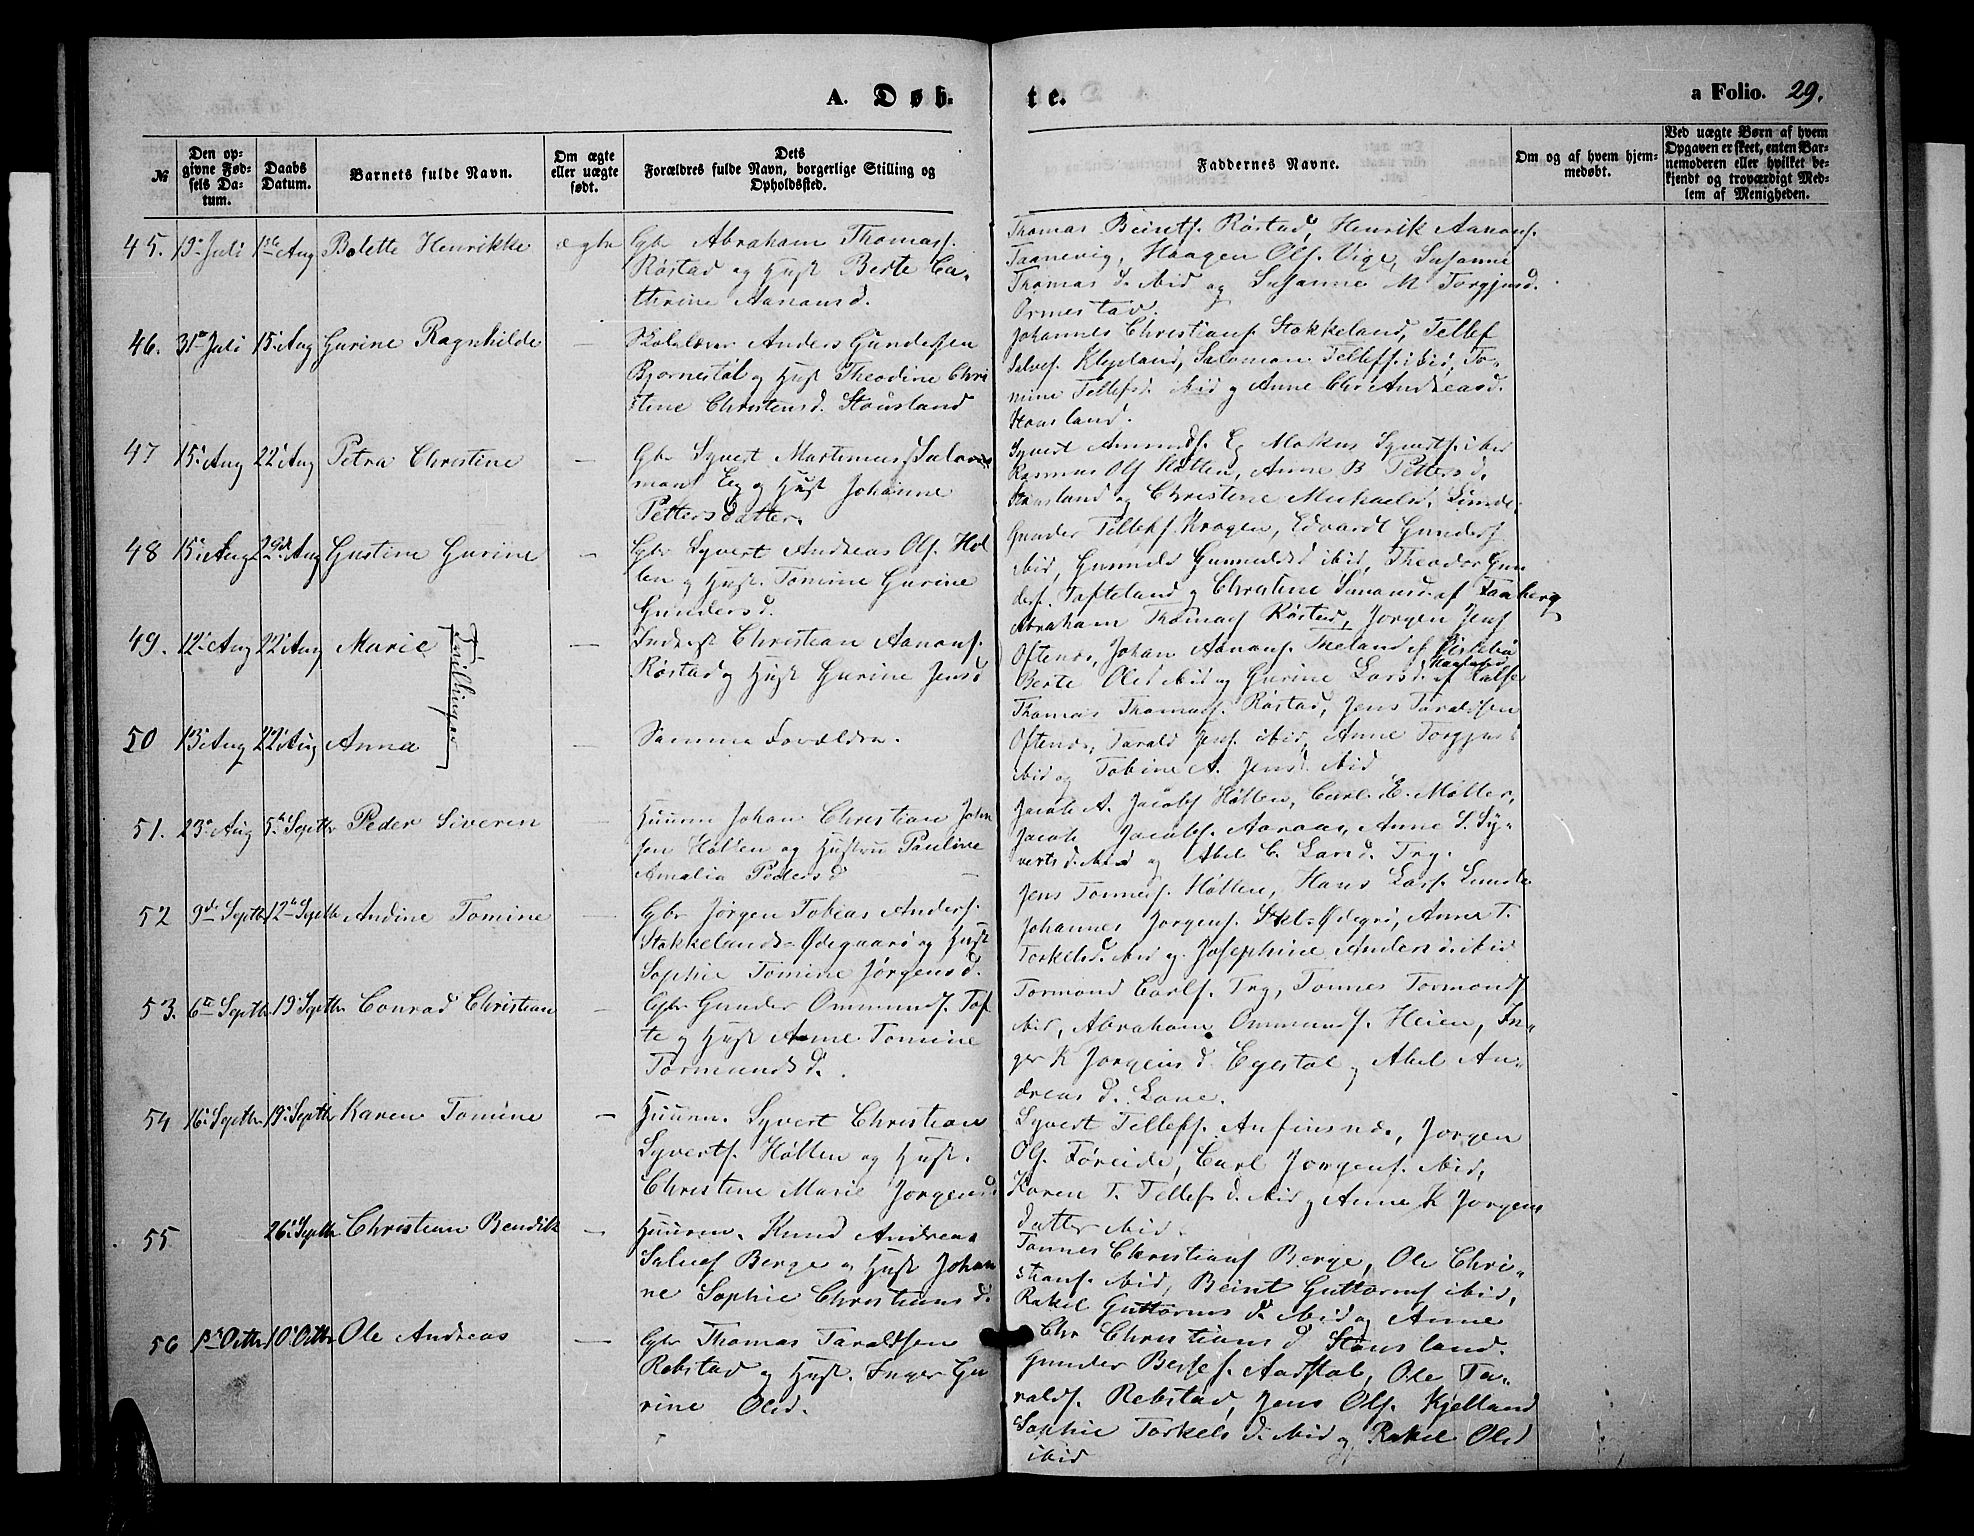 A. Døb-
te.
a Folio. 29.
№
Den op-
givne Fød-
sels Da-
tum.
Daabs
Datum.
Barnets fulde Navn.
Om ægte
eller uægte
født.
Dets
Forældres fulde Navn, borgerlige Stilling og
Opholdssted.
Faddernes Navne.
Om og af hvem hjem-
medøbt.
Ved uægte Børn af hvem
Opgaven er skeet, enten Bar-
nemoderen eller hvilket be-
kjendt og troværdigt Med-
lem af Menigheden.
45. 19 Juli 1ste Aug Bolette Henrikke ægte Gbr Abraham Thomasf.
Røstad og Hust Berte Ca-
thrine Aanonsd.
Thomas Beintf. Røstad, Henrik Aanonf.
Taanevig, Haagen Olf. Vige, Susanne
Thomas d. ibid og Susanne M Torgjusd.
Ormestad.
46. 31 Juli 15 Aug Gurine Ragnhilde — Skolelærer Anders Gundersen
Bjørnestøl og Hust Theodine Chri
stine Christensd. Stousland
Johannes Christianf. Stokkeland, Tellef
Salvef. Klepland, Salomon Tellefs. ibid, To-
mine Tellefsd. ibid og Anne Chr Andreasd.
Stousland.
47 15 Aug 22 Aug Petra Christine — Gbr Syvert Martinius Salo
mons Eg og Hust Johanne
Pettersdatter.
Syvert Ommundf. Eg Markus Syvertf. ibid
Rasmus Olf Holten, Anne B. Petters d.
Stousland og Christine Michaelsd.
48 15 Aug 22de Aug Gustine Gurine — Gbr Syvert Andreas Olf. Hol
ten og Hust. Tomine Gurine
Gundersd.
Gunder Tellefs. Kragen, Edvardt Gunderf
ibid, Gunnild Gunnuldsd ibid, Theodor Gun
derf. Tofteland og Christine Simonsd af Faaberg
49. 12 Aug 22 Aug Marie — Inderst Christian Aanonf.
Røstad og Hust Gurine Jensd
Tvillinger
Abraham Thomasf Røstad, Jorgen Jenf
Oftenes, Johan Aanonf. Theland af Øislebø
Berte Olsd ibid og Gurine Larsd. af Halse
50 13 Aug 22 Aug Anna — Samme Forældre.
Thomas Thomasf. Røstad, Jens Taraldsen
Oftenes, Tarald Jenf. ibid, Anne Torgjusd
ibid og Tobine A. Jensd. ibid
51. 23 Aug 5te Septbr Peder Siveren — Huusm Johan Christian John
sen Holten og Hustru Pauline
Amalia Pedersd
Jacob A. Jacobf Holten, Carl E. Møller,
Jacob Jacobf. Aaraas, Anne S. Sy-
vertsd. ibid og Abel C. Larsd. Try.
52 9de Septbr 12te Septbr Andine Tomine — Gbr Jørgen Tobias Anderf.
Stokkelands-Ødegaard og Hust
Sophie Tomine Jørgensd.
Jens Tonnesf. Holten, Hans Larf. Lunde
Johannes Jorgenf. Stkl-Ødegrd, Anne T.
Torkelsd. ibid og Josephine Andersd. ibid
53. 6te Septbr 19 Septbr Conrad Christian — Gbr Gunder Ommundf. Tof
te og Hust Anne Tomine
Tormundsd.
Tormond Carlf. Try, Tonnes Tormondf
ibid, Abraham Ommundf. Heien, In-
ger K Jorgensd. Egestøl og Abel An-
dreas d. Lone.
54 16 Septbr 19 Septbr Karen Tomine — Huusm. Syvert Christian
Syvertf. Holten og Hust.
Christine Marie Jorgensd
Syvert Tellefs. Aufinsnes, Jorgen
Olf. Føreide, Carl Jorgenf. ibid,
Karen T. Tellefsd. ibid og Anne K Jorgens
datter ibid.
55 26 Septbr Christian Bendik — Huusm. Knud Andreas
Salvef Berge og Hust Johan
ne Sophie Christiansd.
Tonnes Christianf Berge, Ole Chri-
stianf. ibid, Beint Guttormf ibid,
Rakel Guttormsd. ibid og Anne
Chr Christiansd Stousland.
56 1ste Octbr 10 Octbr Ole Andreas — Gbr Thomas Taraldsen
Rebstad og Hust. Inger Gu
rine Olsd.
Gunder Berf. Aadstøl, Ole Ta-
raldf. Rebstad, Jens Olf. Kjelland
Sophie Torkelsd. ibid og Rakel Olsd
ibid